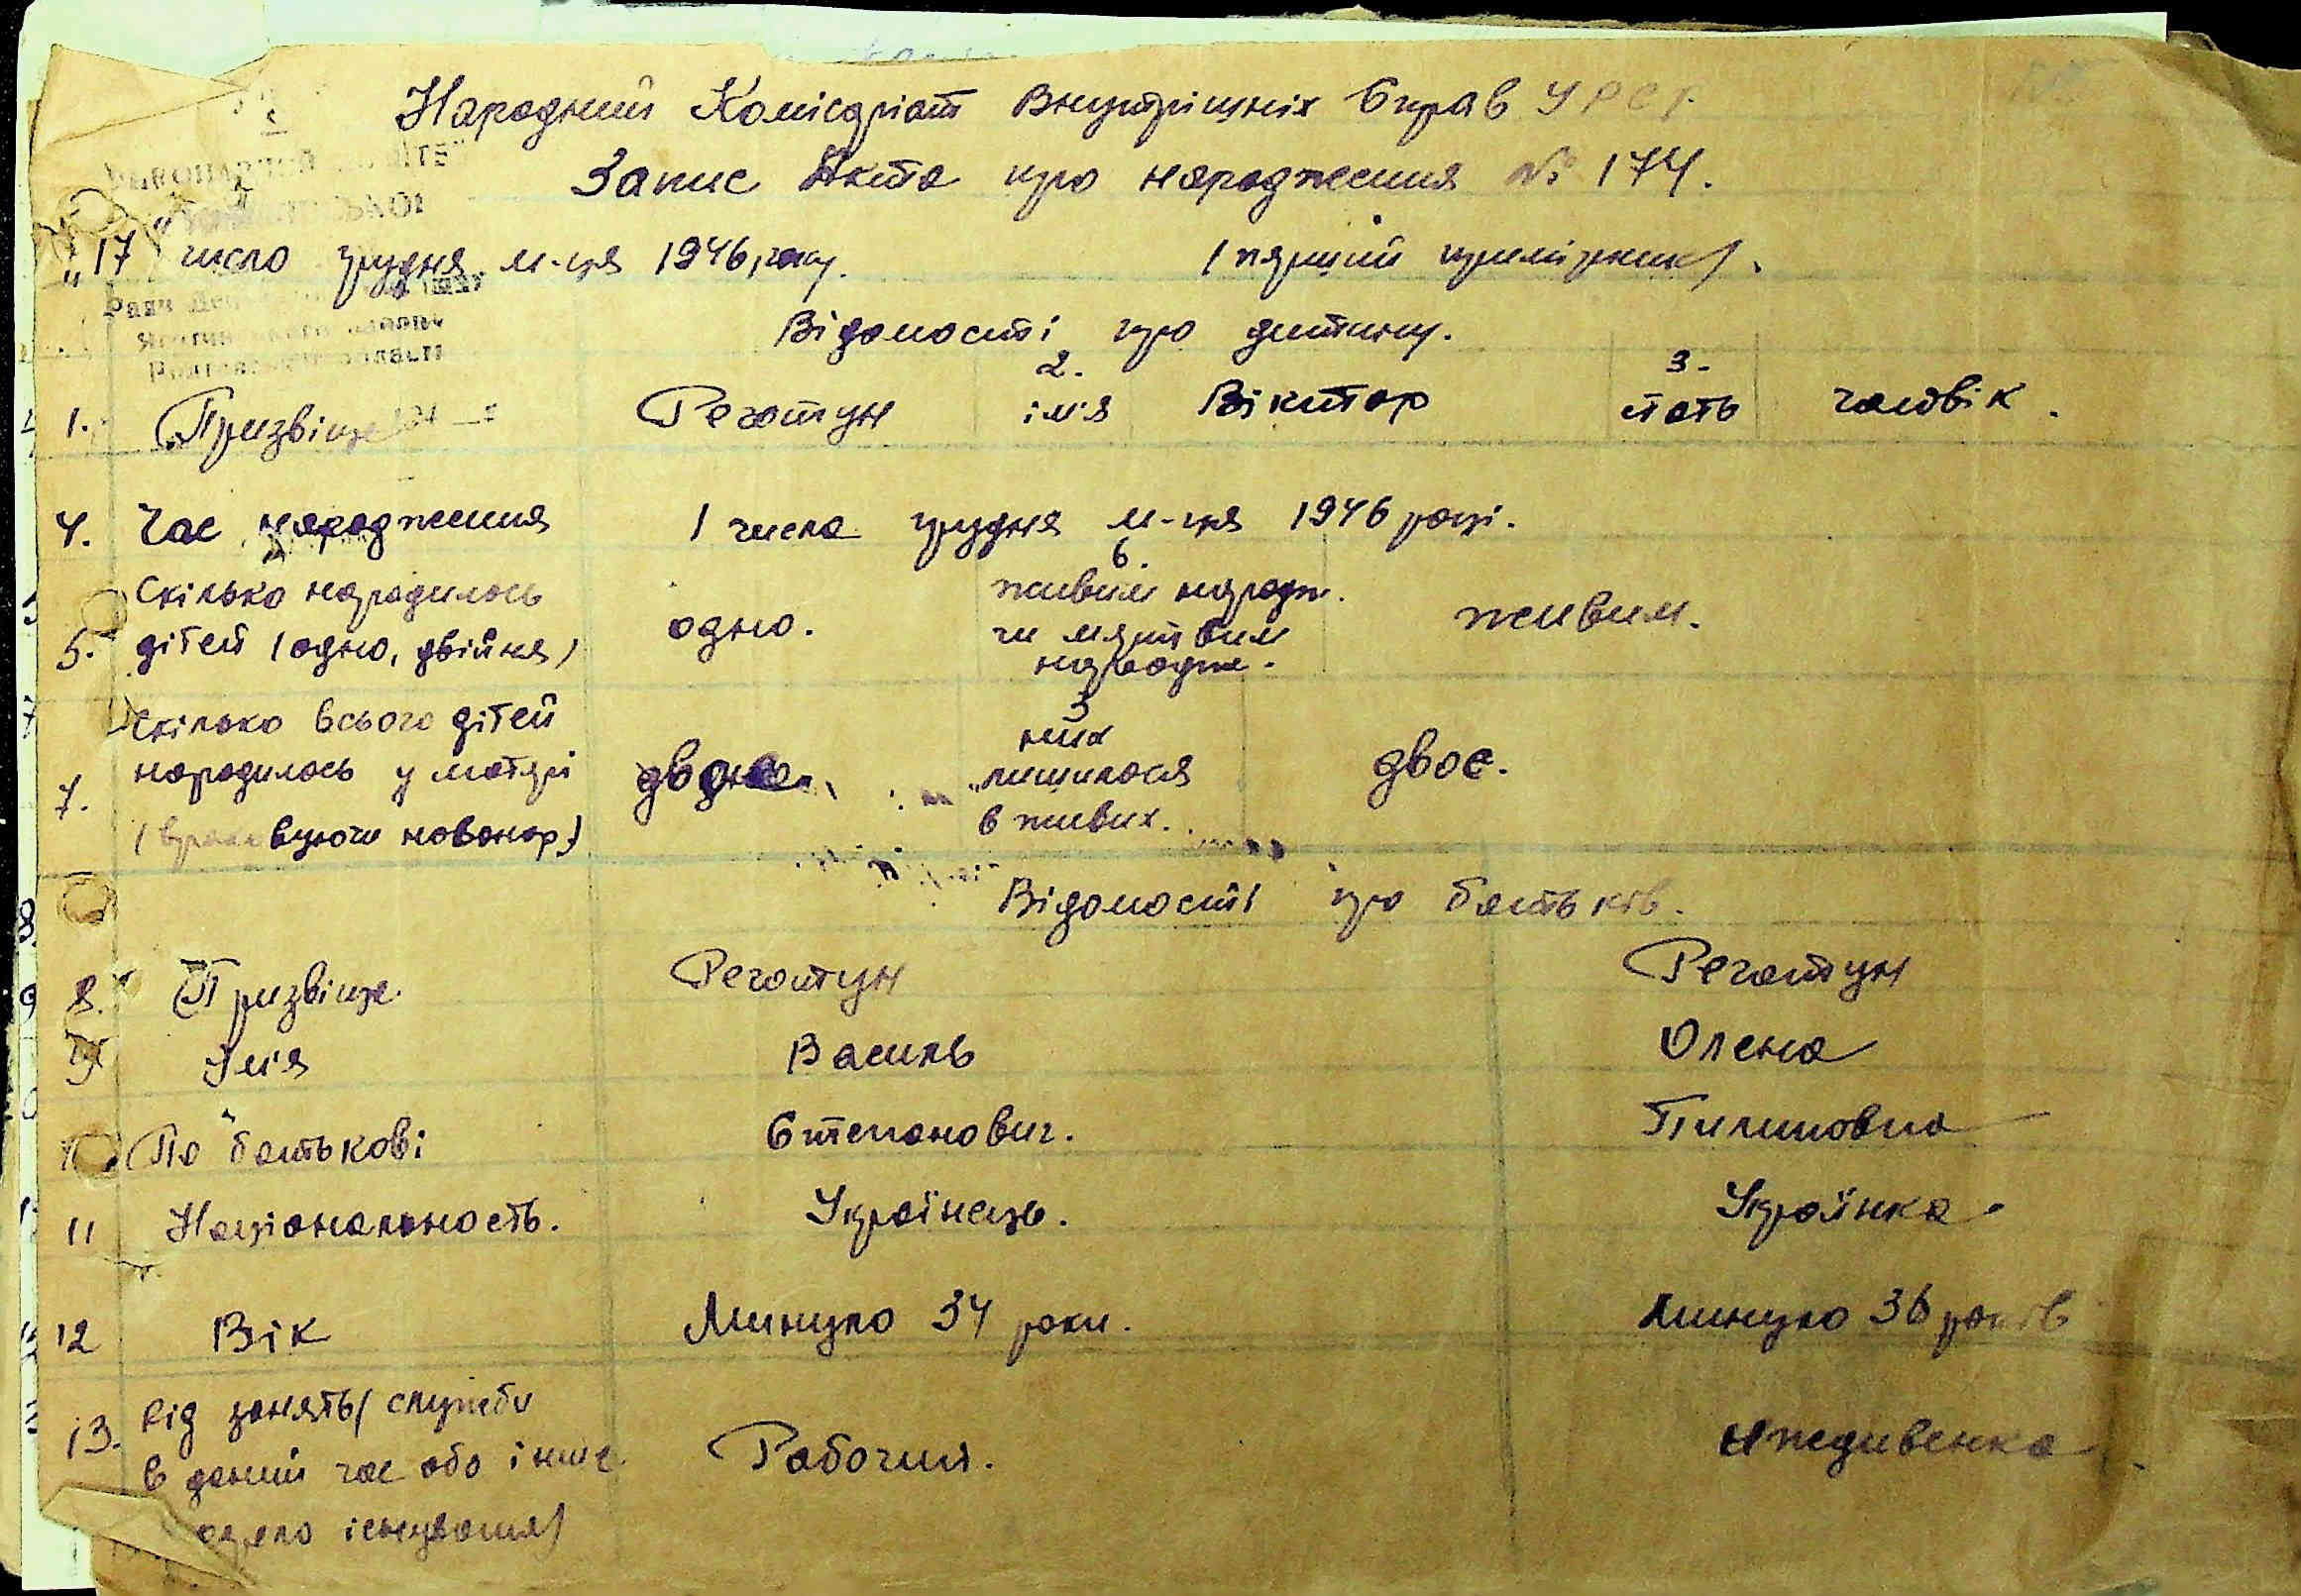 Народний Комісаріат Внутрішніх Справ УРСР.
Запис Акта про народження № 174.
„17" число грудня м-ця 1946 року.
(перший примірник).
Відомості про дитину.
1. Призвіще Реготун 2. ім'я Віктор 3. стать чоловік.
4. Час народження 1 числа грудня м-ця 1946 році.
5. Скілько народилось дітей (одно, двійня) одно. 6. живим народж. чи мертвим народже. живим.
7. Скілько всього дітей народилось у матері (враховуючи новонар.) З них лишилося в живих. двоє.
Відомості про батьків.
8. Призвіще Реготун Реготун
9 Ім'я Василь Олена
10 По батькові Степанович. Пилиповна
11 Національность. Українець. Українка.
12 Вік Минуло 34 роки. минуло 36 років
13. Рід занять (служби в даний час або інше існування) Рабочий. Иждивенка